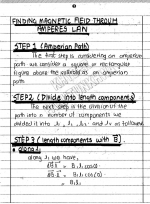 FINDING MAGNETIC FIELD THROUGH
AMPERES LAW
STEP 1 (Amperian Path)
The first step is considering an amperian
path we consider a square or rectangular
figure above the solenoid as an amperian
path
STEP 2 (Divide into length components)
The next step is the division of the
path into n number of components we
divided it into l₁ l₂ l₃ and l₄ followed
STEP 3 (length components with B)
along l₁
along l₁ we have,
B l₁ cosθ
B l₁ cos(0)
B l₁